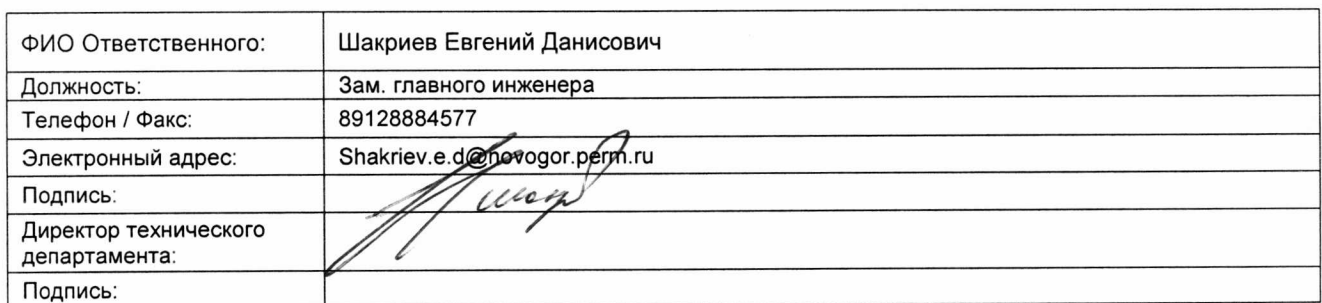 ФИО Ответственного: Шакриев Евгений Данисович
Должность: Зам. главного инженера
Телефон / Факс: 89128884577
Электронный адрес: Shakriev.e.d@novogor.perm.ru
Подпись:
Директор технического
департамента:
Подпись: